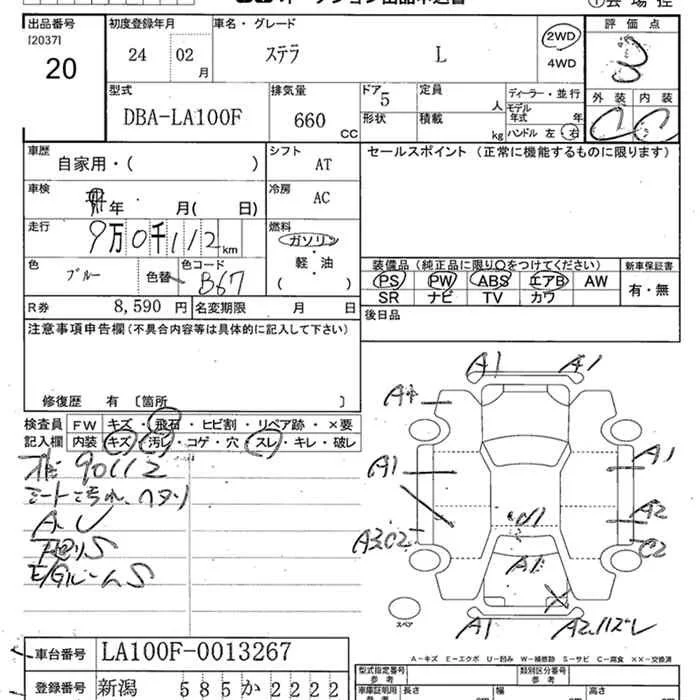 オークション出品申込書
①会場控
出品番号 初度登録年月 車名・グレード 評価点
120371
20
24 02 月
ステラ L
2WD
4WD
3
型式 排気量 ドア 定員 ディーラー・並行
DBA-LA100F 660 CC
5 形状 積載 人 kg
モデル年式 年
ハンドル 左 右
外装 内装
C C
車歴 自家用・( )
シフト AT
セールスポイント (正常に機能するものに限ります)
車検 年 月( 日)
冷房 AC
走行 9万0千112km
燃料 ガソリン
軽・油
( )
色 ブルー 色替 色コード B67
装備品 (純正品に限り○をつけてください) 新車保証書
PS PW ABS エアB AW 有・無
SR ナビ TV カワ
R券 8,590 円 名変期限 月 日
後日品
注意事項申告欄 (不具合内容等は具体的に記入して下さい)
修復歴 有 〔箇所 〕
検査員記入欄
FW キズ・飛石・ヒビ割・リペア跡・×要
内装 キズ・汚レ・コゲ・穴・スレ・キレ・破レ
90112
シートヨゴレ、ヘタリ
A、U
下廻りS
E/GルームS
A1 A1
A4
A1 A1
A2
A3C2 U1 C2
A1
A1 A2
スペア
A-キズ E-エクボ U-凹み W-補修跡 S-サビ C-腐食 ××-交換済
車台番号 LA100F-0013267
登録番号 新潟 585か2222
型式指定番号 参考
類別区分番号 参考
車庫証明用 長さ 幅 高さ